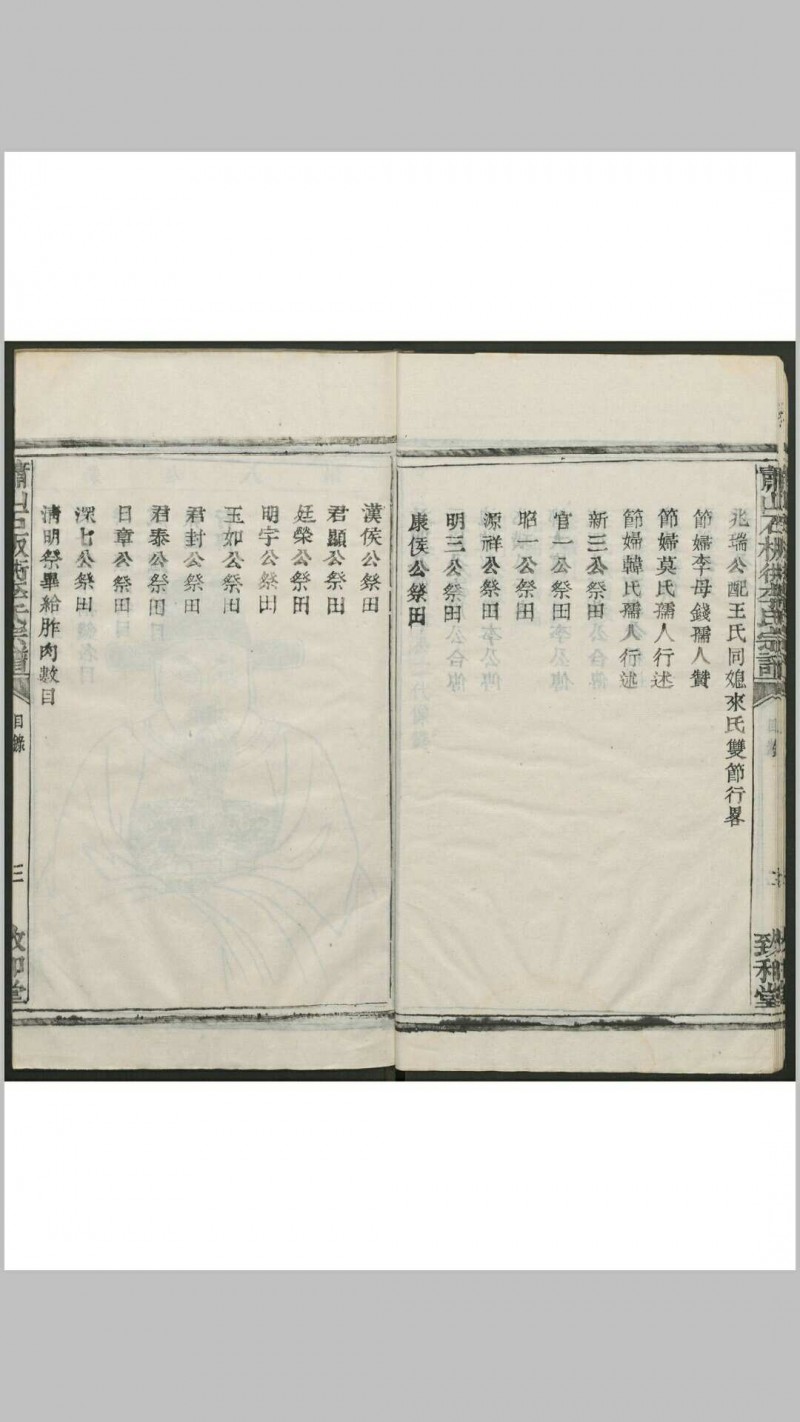 兆瑞公配王氏同媳來氏雙節行畧
節婦李母錢孺人贊
節婦莫氏孺人行述
節婦韓氏孺人行述
新三公祭田
官一公祭田
昭一公祭田
源祥公祭田
明三公祭田
康侯公祭田
致和堂
漢侯公祭田
君顯公祭田
廷榮公祭田
明宇公祭田
玉如公祭田
君封公祭田
君泰公祭田
日章公祭田
深七公祭田
清明祭畢給胙肉數目
目錄
三